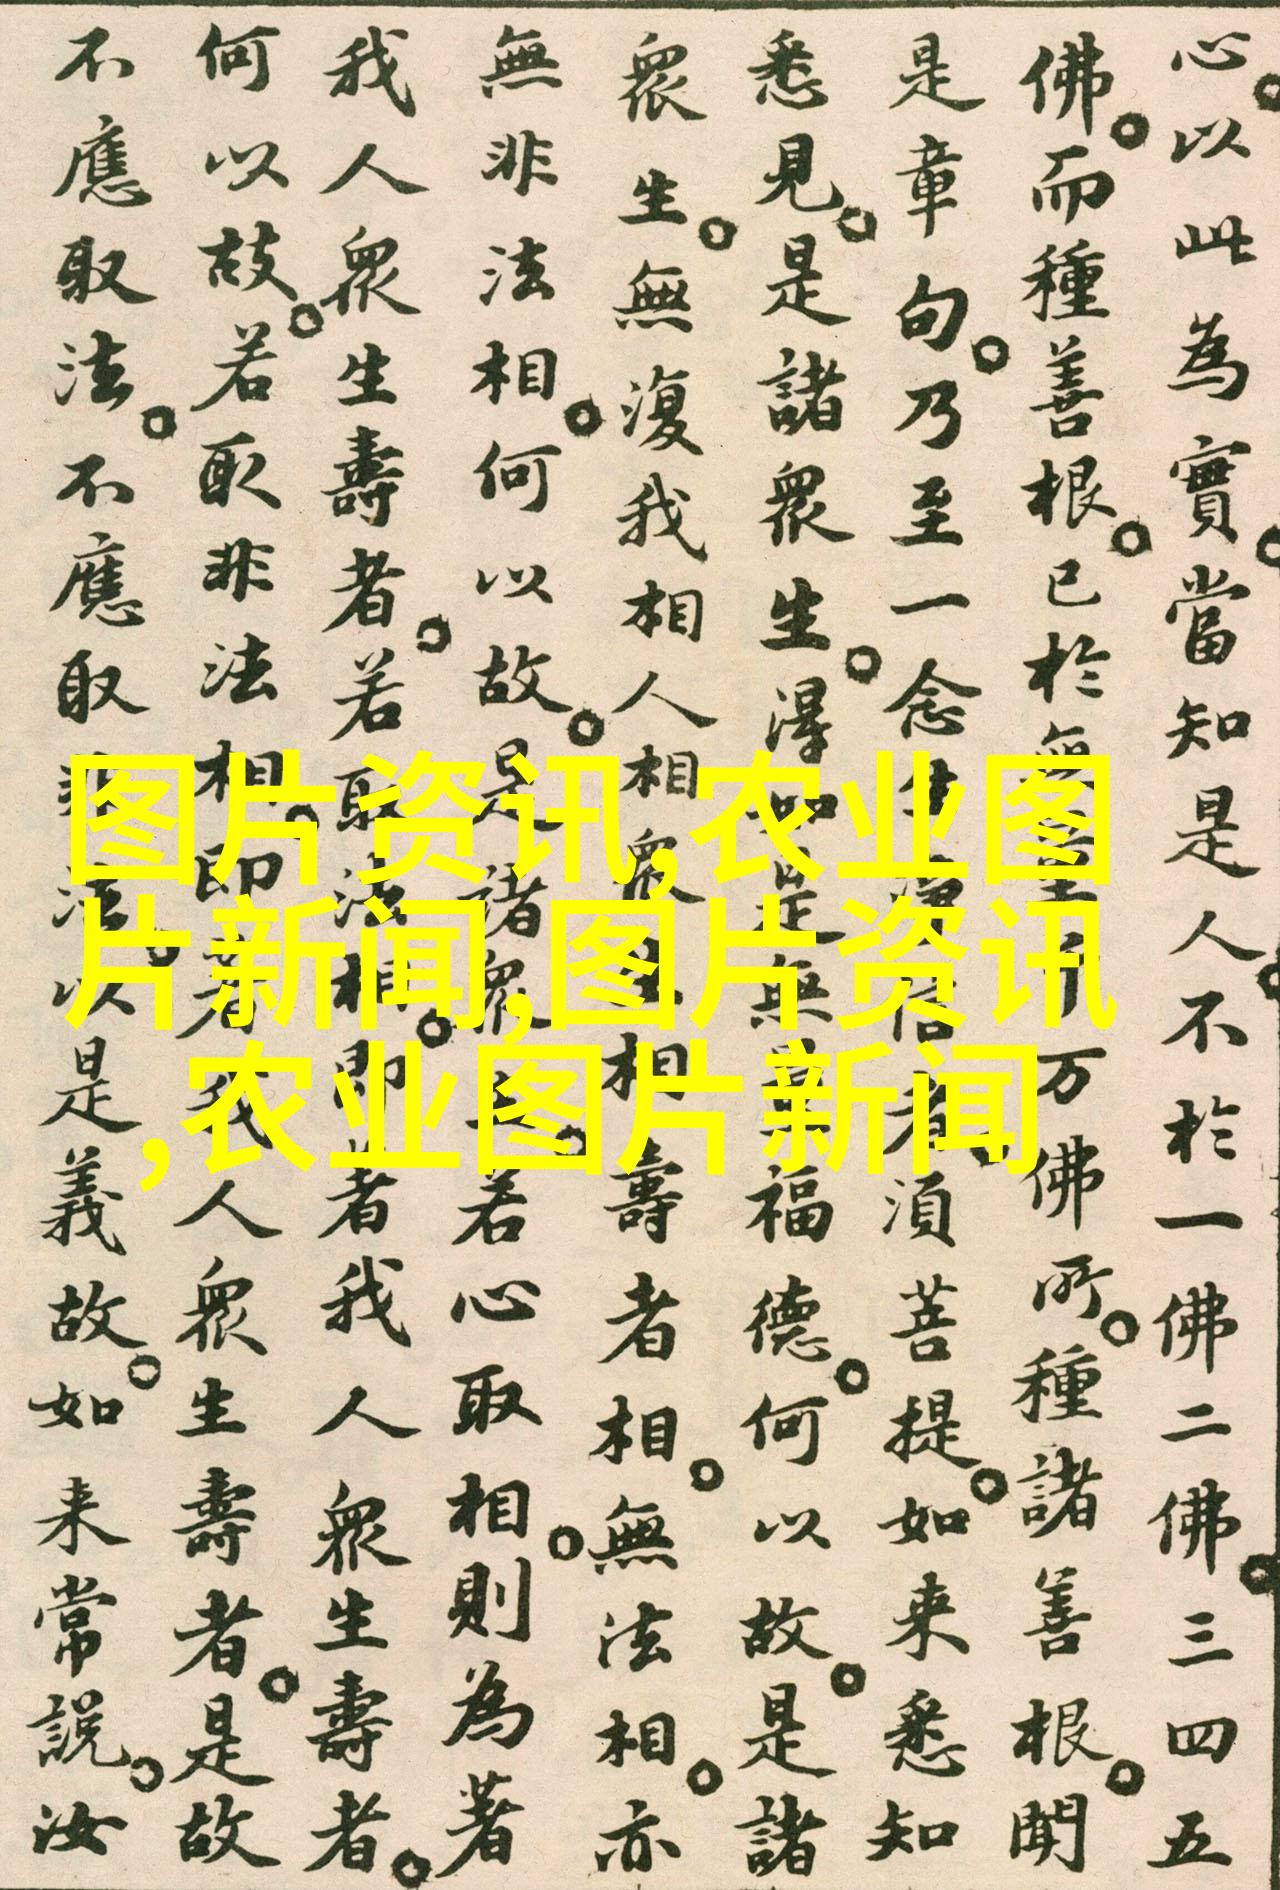 心。以此為實。當知是人。不於一佛二佛。三四五
佛。而種善根。已於無量千万佛所。種諸善根。聞
是章句。乃至一念生淨信者。須菩提。如来悉知
悉見。是諸衆生。淂如是無量福德。何以故。是諸
衆生。無復我相人相衆生相壽者相。無法相。亦
無非法相。何以故。是諸衆生。若心取相。則為著
我人衆生壽者。若取法相。即著我人衆生壽者。
何以故。若取非法相。即著我人衆生壽者。是故
不應取法。不應取非法。以是義故。如来常說。汝
图片资讯,农业图
片新闻,图片资讯
,农业图片新闻